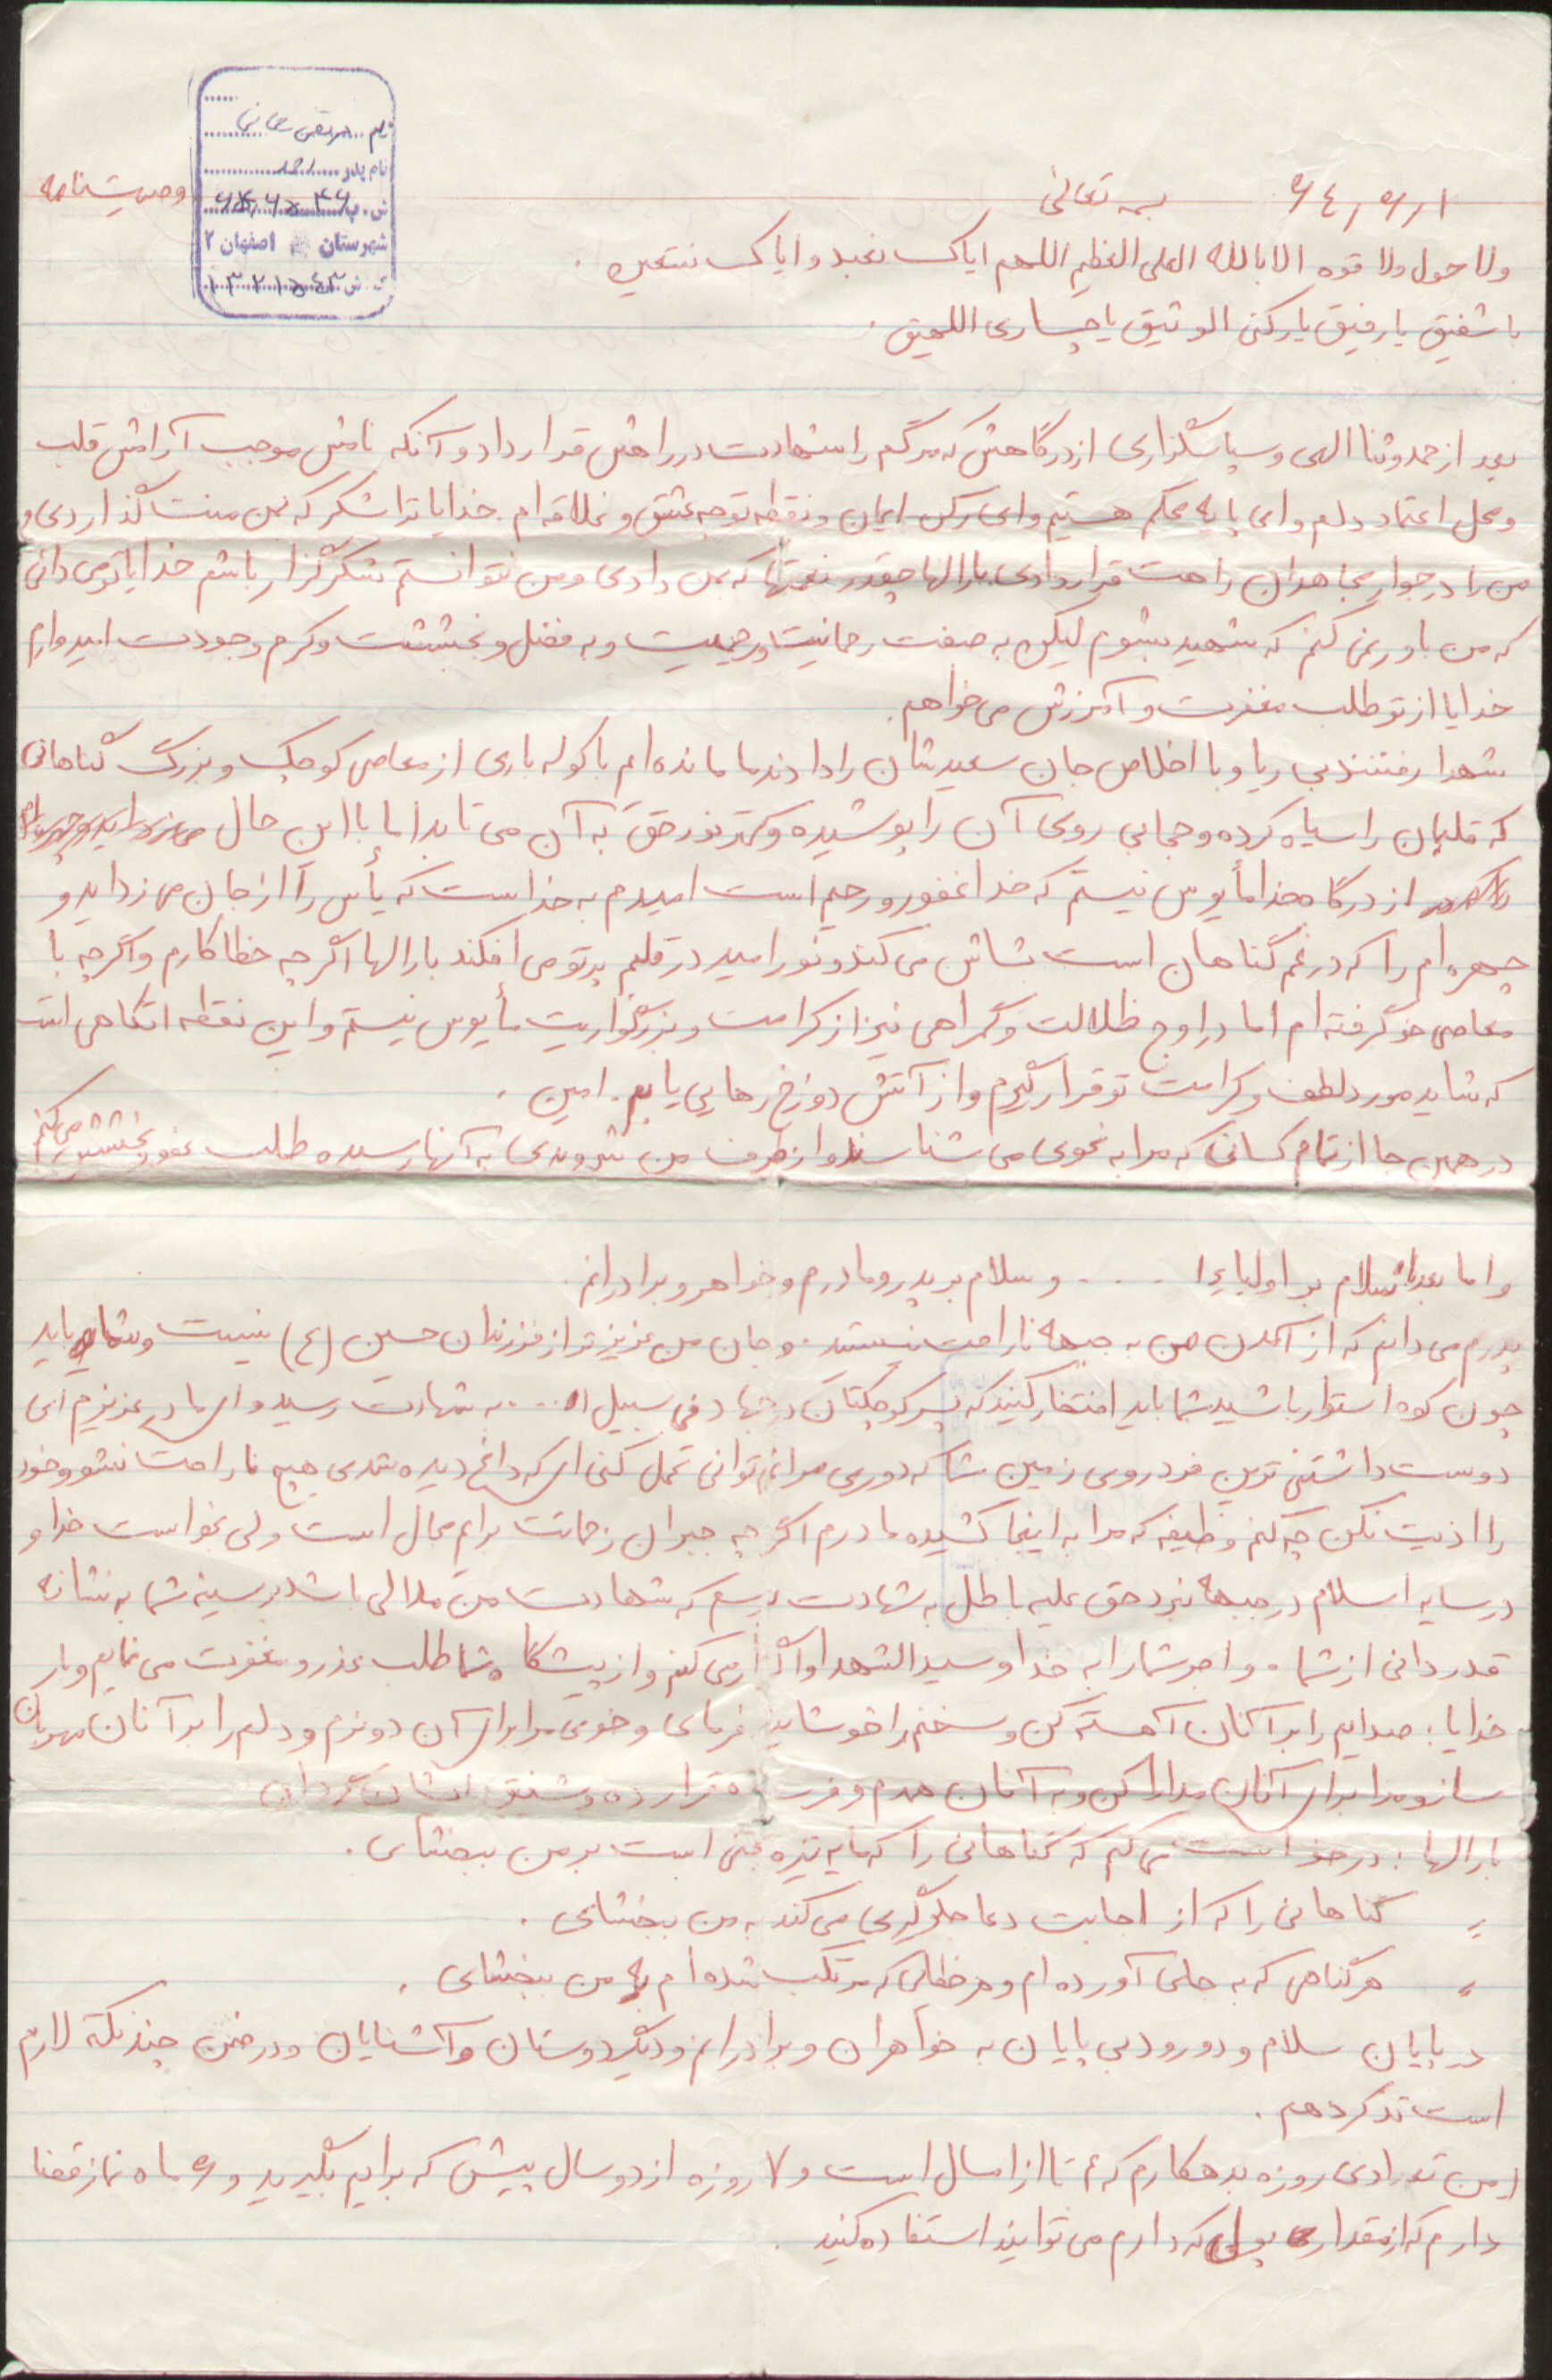 نام ..مرتضی
نام پدر
ش. پ
شهرستان اصفهان ۲
وصیت‌نامه
بسمه تعالی
۶۴/۶/۱
ولا حول ولا قوه الا بالله العلی العظیم اللهم ایاک نعبد و ایاک نستعین.
یا شفیق یا رفیق یا رکنی الوثیق یا جاری اللصیق.
بعد از حمد و ثنا الهی و سپاسگزاری از درگاهش که مرگم را شهادت در راهش قرار داد و آنکه نامش موجب آرامش قلب
و محل اعتماد دلم و ای پایه محکم هستیم و ای رکن ایمان و نقطه توجه عشق و علاقه‌ام. خدایا ترا شکر که بمن منت گذاردی و
من را در جوار مجاهدان راهت قرار دادی بارالها چقدر نعمتها که بمن دادی و من نتوانستم شکرگزار باشم خدایا تو می دانی
که من باور نمی کنم که شهید بشوم لیکن به صفت رحمانیت و رحیمیت و به فضل و بخششت و کرم وجودت امیدوارم
خدایا از تو طلب مغفرت و آمرزش می خواهم.
شهدا رفتند بی ریا و با اخلاص جان سعیدشان را دادند ما مانده‌ایم با کوله باری از معاصی کوچک و بزرگ گناهانی
که قلبمان را سیاه کرده و حجابی روی آن را پوشیده و کمتر نور حق به آن می تابد اما با این حال
از درگاه خدا مأیوس نیستم که خدا غفور و رحیم است امیدم به خداست که یأس را از جان می زداید و
چهره‌ام را که در غم گناهان است بشاش می کند و نور امید در قلبم پرتو می افکند بارالها اگر چه خطا کارم و اگر چه با
معاصی خو گرفته‌ام اما در اوج ظلالت و گمراهی نیز از کرامت و بزرگواریت مأیوس نیستم و این نقطه اتکاهی است
که شاید مورد لطف و کرامت تو قرار گیرم و از آتش دوزخ رهایی یابم. امین.
در همین جا از تمام کسانی که مرا به نحوی می شناسند و از طرف من شر و بدی به آنها رسیده طلب عفو و بخشش می کنم
و اما بعد سلام بر اولیاء ا .... و سلام بر پدر و مادرم و خواهر و برادرانم.
پدرم می دانم که از آمدن من به جبهه ناراحت نیستید. و جان من عزیزتر از فرزندان حسین (ع) نیست و شما باید
چون کوه استوار باشید شما باید افتخار کنید که پسر کوچکتان در جهاد فی سبیل ا.... به شهادت رسید و ای مادر عزیزم ای
دوست داشتنی ترین فرد روی زمین شما که دوری مرا نمی توانی تحمل کنی ای که داغ دیده شدی هیچ ناراحت نشو و خود
را اذیت نکن چه کنم وظیفه که مرا به اینجا کشیده مادرم اگر چه جبران زحماتت برایم محال است ولی بخواست خدا و
در سایه اسلام در جبهه نبرد حق علیه باطل به شهادت برسم که شهادت من مدالی باشد بر سینه شما به نشانه
قدردانی از شما. و اجر شما را به خدا و سیدالشهدا واگذار می کنم و از پیشگاه شما طلب عذر و مغفرت می نمایم و بار
خدایا: صدایم را بر آنان آهسته کن و سخنم را خوشایند فرمای و خوی مرا برای آن دو نرم و دلم را بر آنان مهربان
ساز و مرا برای آنان مدارا کن و به آنان قرار ده و شفیق ایشان گردان
بارالها: درخواست می کنم که گناهانی را که مایه تیره بختی است بر من ببخشای.
" گناهانی را که از اجابت دعا جلوگیری می کند به من ببخشای.
" هر گناهی که به جای آورده‌ام و هر خطایی که مرتکب شده‌ام به من ببخشای.
در پایان سلام و دورود بی پایان به خواهران و برادرانم و دیگر دوستان و آشنایان و در ضمن چند نکته لازم
است تذکر دهم.
من تعدادی روزه بدهکارم که تا از امسال است و ۷ روزه از دو سال پیش که برایم بگیرید و ۶ ماه نماز قضا
دارم که از مقدار پولی که دارم می توانید استفاده کنید.